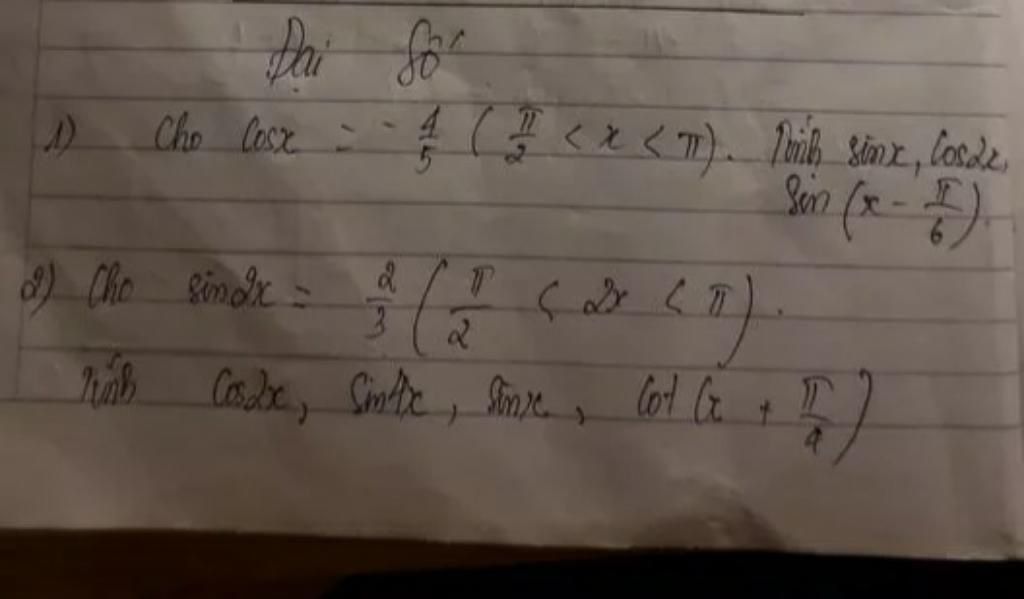 Đại Số
1) Cho cosx = - 4/5 ( π/2 < x < π). Tính sinx, cos2x,
sin (x - π/6).
2) Cho sin2x = 2/3 ( π/2 < 2x < π ).
Tính cos2x, sin4x, sinx, cot (x + π/4)